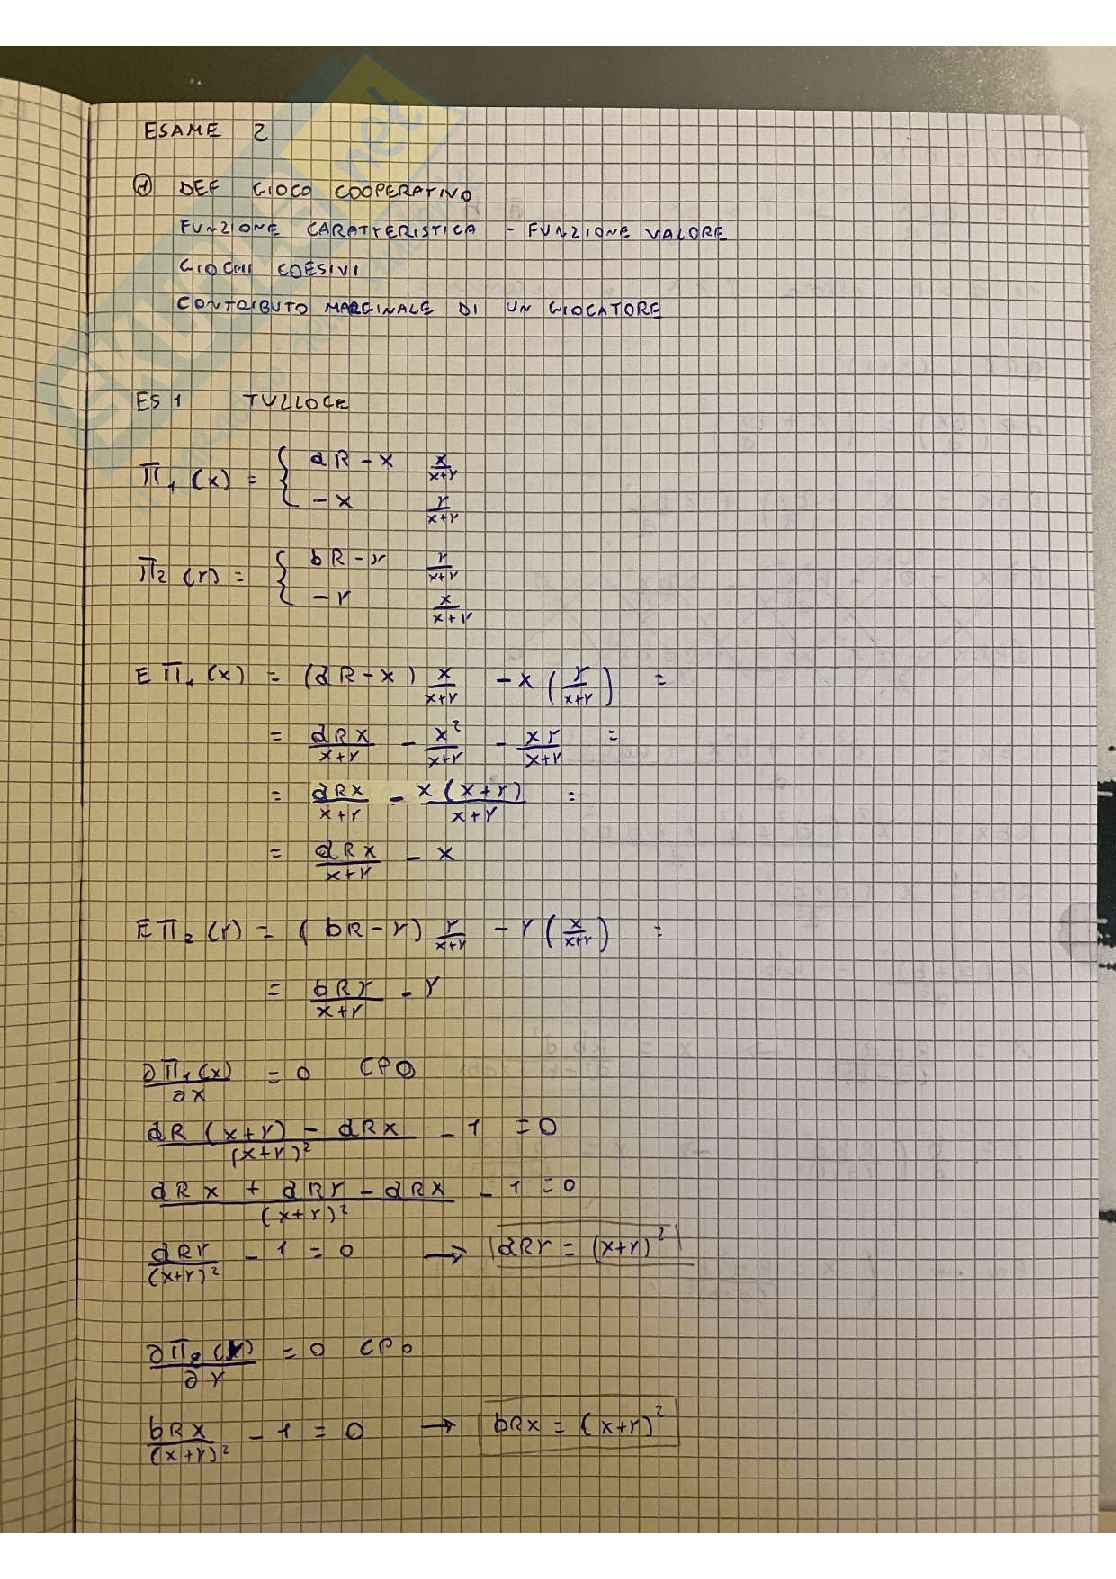 ESAME 2
① DEF GIOCO COOPERATIVO
FUNZIONE CARATTERISTICA - FUNZIONE VALORE
GIOCHI COESIVI
CONTRIBUTO MARGINALE DI UN GIOCATORE
ES 1 TULLOCK
Π₁(x) = { aR - x   x/(x+y)
-x   y/(x+y)
Π₂(y) = { bR - y   y/(x+y)
-y   x/(x+y)
EΠ₁(x) = (aR - x) x/(x+y) - x (y/(x+y)) =
= aRx/(x+y) - x²/(x+y) - xy/(x+y) =
= aRx/(x+y) - x(x+y)/(x+y) =
= aRx/(x+y) - x
EΠ₂(y) = (bR - y) y/(x+y) - y (x/(x+y)) =
= bRy/(x+y) - y
∂Π₁(x)/∂x = 0 CPO
(aR(x+y) - aRx)/(x+y)² - 1 = 0
(aRx + aRy - aRx)/(x+y)² - 1 = 0
aRy/(x+y)² - 1 = 0 → aRy = (x+y)²
∂Π₂(y)/∂y = 0 CPO
bRx/(x+y)² - 1 = 0 → bRx = (x+y)²